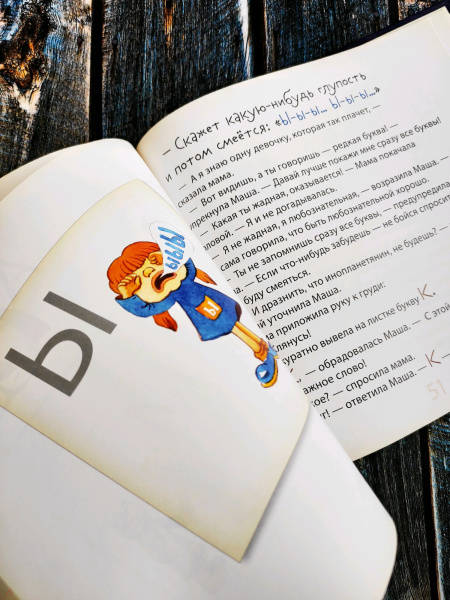 Ы
ЫЫЫ
Ы
— Скажет какую-нибудь глупость
и потом смеётся: «Ы-ы-ы... Ы-ы-ы...»
— А я знаю одну девочку, которая так плачет, —
сказала мама.
— Вот видишь, а ты говоришь — редкая буква! —
прекнула Маша. — Давай лучше покажи мне сразу все буквы!
— Какая ты жадная, оказывается! — Мама покачала
ловой. — Я и не догадывалась.
— Я не жадная, я любознательная, — возразила Маша. —
сама говорила, что быть любознательной хорошо.
— Ты не запомнишь сразу все буквы, — предупредила
— Если что-нибудь забудешь — не бойся спросить
буду смеяться.
И дразнить, что инопланетянин, не будешь? —
й уточнила Маша.
а приложила руку к груди:
лянусь!
куратно вывела на листке букву К.
— обрадовалась Маша. — С этой
ажное слово!
кое? — спросила мама.
т! — ответила Маша. К —
51